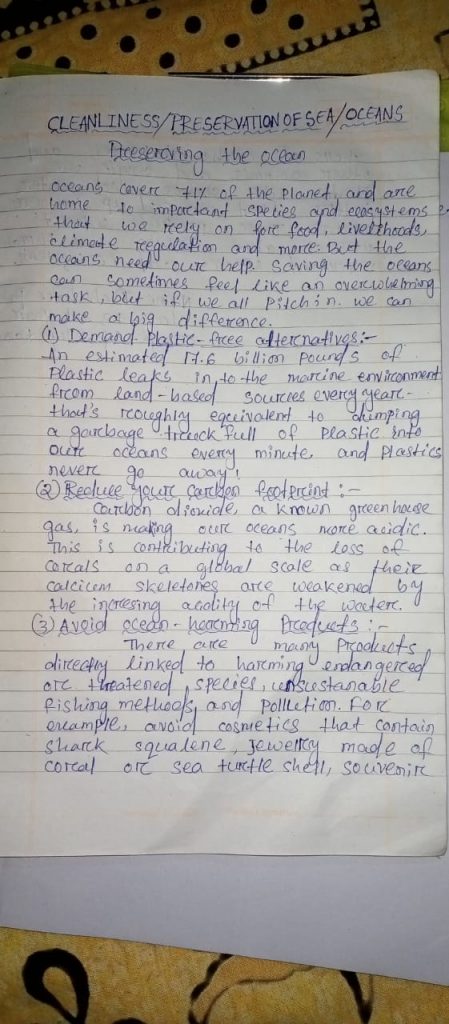 CLEANLINESS/PRESERVATION OF SEA/OCEANS
Preserving the ocean
oceans cover 71% of the planet, and are
home to important species and ecosystems
that we rely on for food, livelihoods,
climate regulation and more. But the
oceans need our help. Saving the oceans
can sometimes feel like an overwhelming
task, but if we all pitch in. we can
make a big difference.
(1) Demand Plastic-free alternatives:-
An estimated 17.6 billion pounds of
Plastic leaks in,to the marine environment
from land-based sources every year-
that's roughly equivalent to dumping
a garbage truck full of plastic into
our oceans every minute, and plastics
never go away!
(2) Reduce your carbon footprint :-
Carbon dioxide, a known green house
gas, is making our oceans more acidic.
This is contributing to the loss of
corals on a global scale as their
calcium skeletones are weakened by
the incresing acality of the water.
(3) Avoid ocean-harming Products :-
There are many Products
directly linked to harming endangered
or threatened species, unsustanable
fishing methods, and pollution. For
example, avoid cosmetics that contain
shark squalene, jewelry made of
coral or sea turtle shell, souvenir